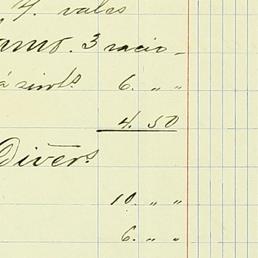 4. vales
3 racio_
6. " "
4. 50
Divers
10. " "
6. " "